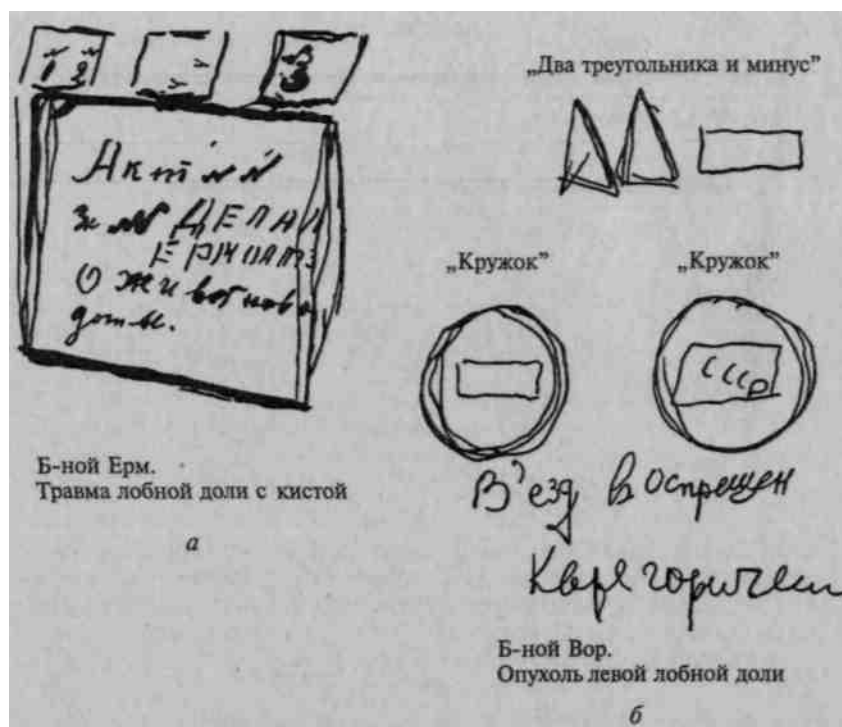 1 2
3
Акт №
з № ДЕПАИ
О животново
дты.
Б-ной Ерм.
Травма лобной доли с кистой
а
„Два треугольника и минус”
„Кружок”
„Кружок”
СССР
В'езд воспрещен
Б-ной Вор.
Опухоль левой лобной доли
б